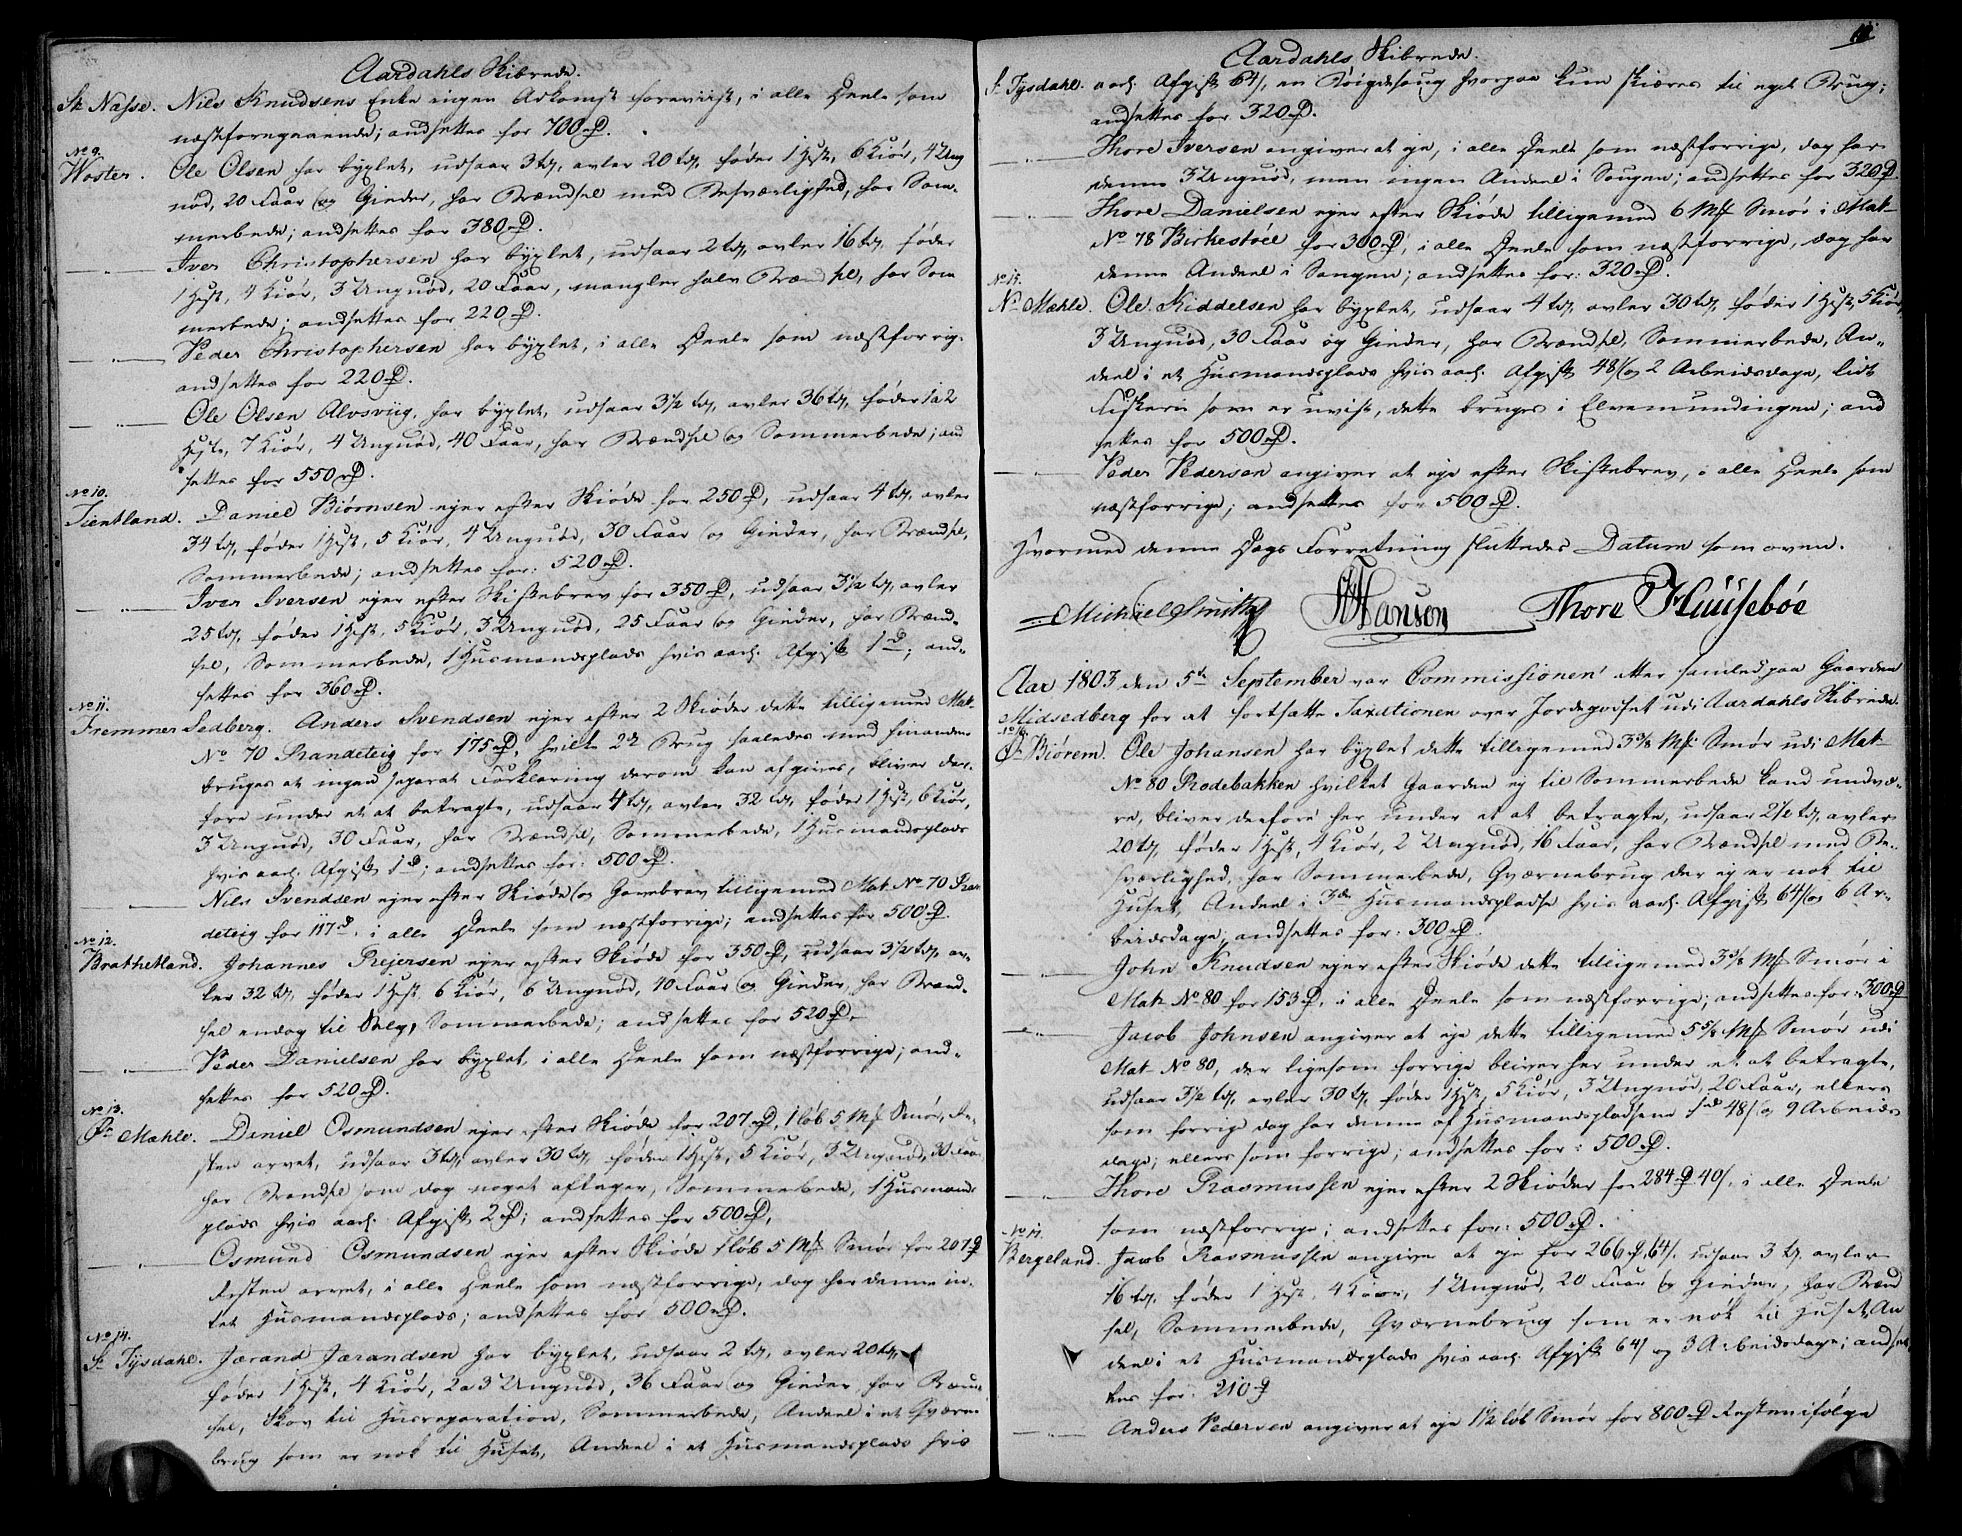 Aardahls Skibrede.
St. Nasse. Nils Knudsens Enke ingen Adkomst foreviist, i alle Deele som
næstforegaaende; andsettes for 700 rD.
No 9.
Woster. Ole Olsen har bygslet, udsaar 3 td, avler 20 td, føder 1 Hest, 6 Kiør, 4 Ung
nød, 20 Faar og Gieder, har Brændsel med Besværlighed, har Som-
merbede; andsettes for 380 rD.
Iver Christophersen har bygslet, udsaar 2 td, avler 16 td, føder
1 Hest, 4 Kiør, 3 Ungnød, 20 Faar, mangler halv Brændsel, har Som
merbede; andsettes for 220 rD.
Peder Christophersen har bygslet, i alle Deele som næstforrig-
andsettes for 220 rD.
Ole Olsen Alvsviig, har bygslet, udsaar 3 1/2 td, avler 36 td, føder 1 a 2
Heste, 7 Kiør, 4 Ungnød, 40 Faar, har Brændsel og Sommerbede; and
settes for 550 rD.
No 10.
Tientland. Daniel Biørnsen ejer efter Skiøde for 250 rD, udsaar 4 td, avler
34 td, føder 1 Hest, 5 Kiør, 4 Ungnød, 30 Faar og Gieder, har Brændsel,
Sommerbede; andsettes for: 520 rD.
Iver Iversen ejer efter Skiftebrev for 350 rD, udsaar 3 1/2 td, avler
25 td, føder 1 Hest, 5 Kiør, 3 Ungnød, 25 Faar og Gieder, har Brænd-
sel, Sommerbede, 1 Husmandsplads hvis aarl. Afgift 1 rD; and-
settes for 360 rD.
No 11.
Fremmer Sedberg. Anders Svendsen ejer efter 2 Skiøder dette tilligemed Mat-
No 70 Randeteig for 175 rD, hvilke 2de Brug saaledes med hinanden
bruges at ingen separat Forklaring derom kan afgives, bliver der-
fore under et at betragte, udsaar 4 td, avler 32 td, føder 1 Hest, 6 Kiør,
3 Ungnød, 30 Faar, har Brændsel, Sommerbede, 1 Husmandsplads
hvis aarl. Afgift 1 rD; andsettes for: 500 rD.
Nils Svendsen ejer efter Skiøde og Gavebrev tilligemed Mat No 70 Ran
deteig for 117 rD, i alle Deele som næstforrige; andsettes for 500 rD.
No 12.
Brathetland. Johannes Rejersen ejer efter Skiøde for 350 rD, udsaar 3 1/2 td, av-
ler 32 td, føder 1 Hest, 6 Kiør, 6 Ungnød, 40 Faar og Gieder, har Brænd-
sel endog til Salg, Sommerbede; andsettes for 520 rD.
Peder Danielsen har bygslet, i alle Deele som næstforrige; and-
settes for 520 rD.
No 13.
Ør Mæhle. Daniel Osmundsen ejer efter Skiøde for 207 rD, 1 løb 5 Mk Smør, Re-
sten arvet, udsaar 3 td, avler 30 td, føder 1 Hest, 5 Kiør, 3 Ungnød, 30 Faar
har Brændsel som dog noget aftager, Sommerbede, 1 Husmands
plads hvis aarl. Afgift 2 rD; andsettes for 500 rD,
Osmund Osmundsen ejer efter Skiøde 1 løb 5 Mk Smør for 207 rD
Resten arvet, i alle Deele som næstforrige, dog har denne in-
tet Husmandsplads; andsettes for 500 rD.
No 14.
St Tysdahl. Jærand Jærandsen har bygslet, udsaar 2 td, avler 20 td,
føder 1 Hest, 4 Kiør, 2 a 3 Ungnød, 36 Faar og Gieder har Bræn-
sel, Skov til Husreparation, Sommerbede, Andeel i et Qværne-
brug som er nok til Huset, Andeel i et Husmandsplads hvis
Aardahls Skibrede.
St. Tysdahl. aarl. Afgift 64 s, en Bøigdesaug hvorpaa kun skiæres til eget Brug;
andsettes for 320 rD.
Thore Iversen angiver at eje, i alle Deele som næstforrige, dog har
denne 3 Ungnød, men ingen Andeel i Saugen; andsettes for 320 rD.
Thore Danielsen ejer efter Skiøde tilligemed 6 Mk Smør i Mat-
No 78 Birkestøel for 300 rD, i alle Deele som næstforrige, dog har
denne Andeel i Saugen; andsettes for: 320 rD.
No 15.
Nr Mæhle. Ole Kiddelsen har bygslet, udsaar 4 td, avler 30 td, føder 1 Hest, 5 Kiør,
3 Ungnød, 30 Faar og Gieder, har Brændsel, Sommerbede, An-
deel i et Husmandsplads hvis aarl. Afgift 48 s og 2 Arbeidsdage, lidt
Fiskerie som er uvist, dette bruges i Elvemundingen; and
settes for 500 rD.
Peder Pedersen angiver at eje efter Skiftebrev, i alle Deele som
næstforrige; andsettes for 500 rD.
Hvormed denne Dags Forretning sluttedes Datum som oven.
Michael Smith HHanson Thore Huusebøe
Aar 1803 den 5te September var Commissionen etter samled paa Gaarden
Midsedberg for at fortsætte Taxationen over Jordegodset udi Aardahls Skibrede.
No 16.
Ør Biørem. Ole Johansen har bygslet dette tilligemed 3 3/8 Mk Smør udi Mat-
No 80 Rodebakken hvilket Gaarden ej til Sommerbede kand undvæ-
re, bliver derfore her under et at betragte, udsaar 2 1/2 td, avler
20 td, føder 1 Hest, 4 Kiør, 2 Ungnød, 16 Faar, har Brændsel med Be-
sværlighed, har Sommerbede, Qværnebrug der ej er nok til
Huset, Andeel i 3de Husmandspladse hvis aarl. Afgift 64 s og 6 Ar-
beidsdage; andsettes for: 300 rD.
John Knudsen ejer efter Skiøde dette tilligemed 3 3/8 Mk Smør i
Mat- No 80 for 153 rD, i alle Deele som næstforrige; andsettes for: 300 rD
Jacob Johnsen angiver at eje dette tilligemed 5 5/8 Mk Smør udi
Mat- No 80, der ligesom forrige bliver her under et at betragte,
udsaar 3 1/2 td, avler 30 td, føder 1 Hest, 5 Kiør, 3 Ungnød, 20 Faar, ellers
som forrige dog har denne af Husmandspladsene 1 rD 48 s og 9 Arbeids
dage; ellers som forrige; andsettes for: 500 rD.
Thore Rasmussen ejer efter 2 Skiøder for 284 rD 40 s, i alle Deele
som næstforrige; andsettes for: 500 rD.
No 17.
Bergeland. Jacob Rasmussen angiver at eje for 266 rD 64 s, udsaar 3 td, avler
16 td, føder 1 Hest, 4 Kiør, 1 Ungnød, 20 Faar og Gieder, har Brænd
sel, Sommerbede, Qværnebrug som er nok til Huset, An
deel i et Husmandsplads hvis aarl. Afgift 64 s og 3 Arbeidsdage; andset
tes for: 210 rD
Anders Pedersen angiver at eje 1 1/2 løb Smør for 800 rD Resten ifølge